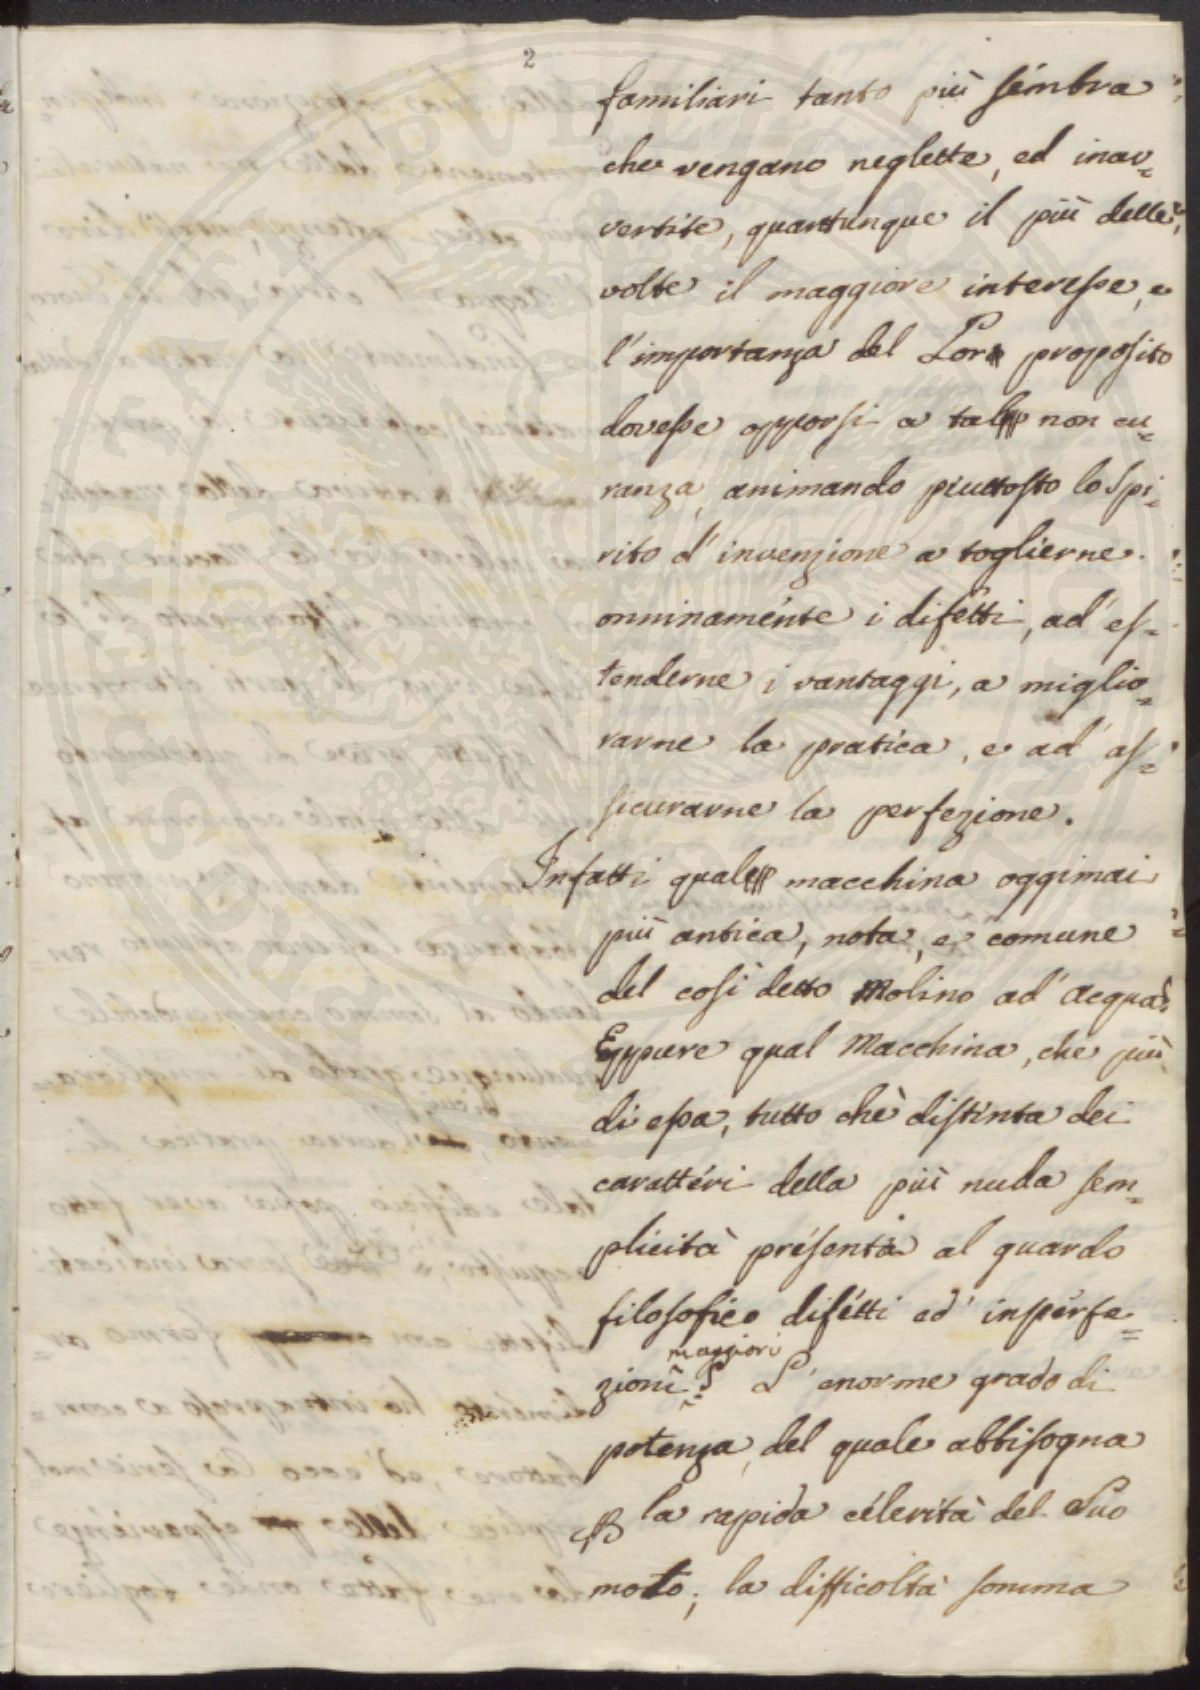 2
familiari tanto più sémbra
che vengano neglette, ed inav=
vertite, quantunque il più delle
volte il maggiore interesse, e
l'importanza del Loro proposito
dovesse opporsi a tal non cu=
ranza, animando piuttosto lo Spi=
rito d'invenzione a toglierne
onninaménte i difétti, ad es=
tenderne i vantaggi, a miglio=
rarne la pratica, e ad as=
sicurarne la perfezione.
Infatti qual macchina oggimai
più antica, nota, e comune
del così detto Molino ad Acqua?
Eppure qual Macchina, che più
di essa, tutto chè distinta dei
carattéri della più nuda sem=
plicità présenta al guardo
filosofico difétti ed inpérfe=
maggiori
zioni? L'enorme grado di
potenza, del quale abbisogna
la rapida célerità del Suo
moto; la difficoltà somma